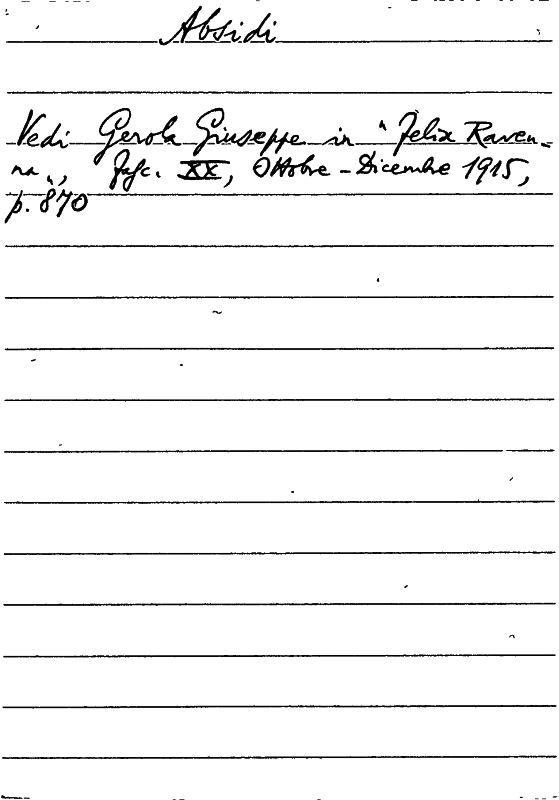 Absidi
Vedi Gerola Giuseppe in "Felix Raven-
na", Fasc. XX, Ottobre - Dicembre 1915,
p. 870